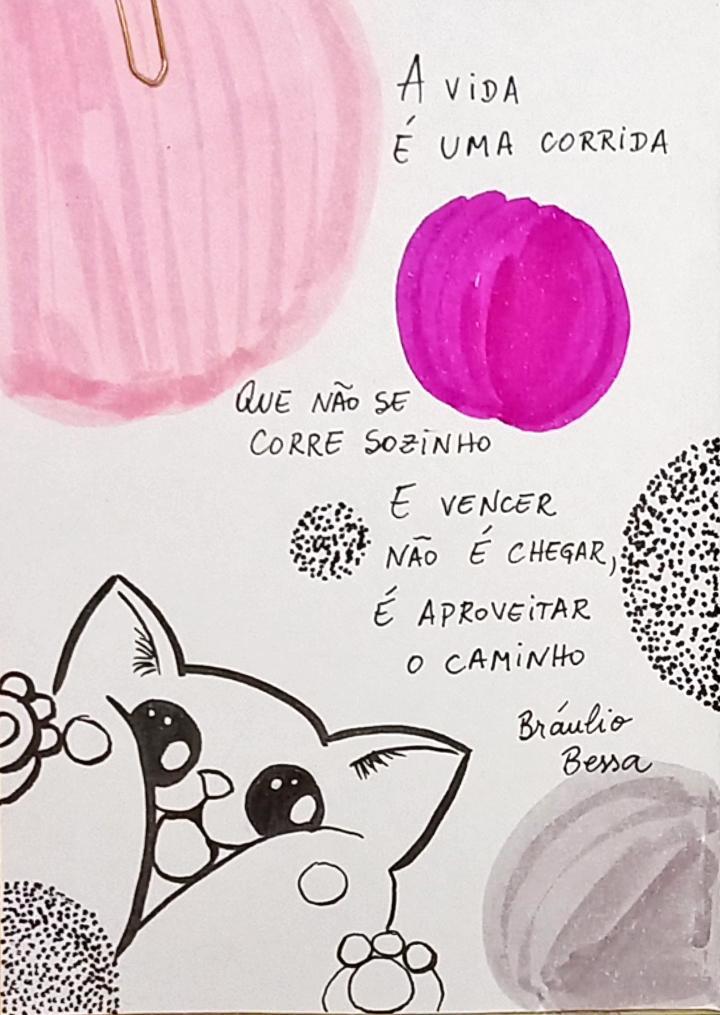 A ViDA
É UMA CORRiDA
QUE NÃO SE
CORRE SOZiNHO
E VENCER
NÃO É CHEGAR,
É APROVEiTAR
O CAMiNHO
Bráulio
Bessa